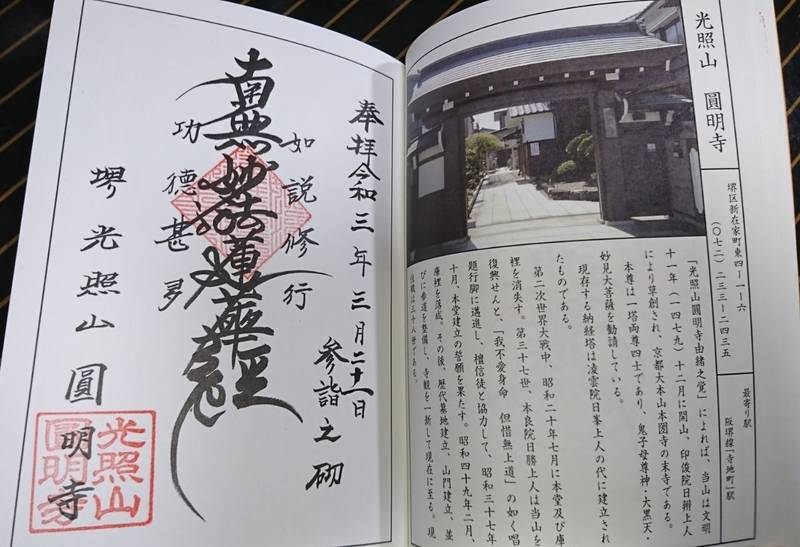 光照山　圓明寺
堺区新在家町東四ー一ー六
(〇七二)二三三ー二四三五
最寄り駅
阪堺線「寺地町」駅
「光照山圓明寺由緒之覚」によれば、当山は文明
十一年(一四七九)十二月に開山、印俊院日辨上人
により草創され、京都大本山本圀寺の末寺である。
本尊は一塔両尊四士であり、鬼子母尊神・大黒天・
妙見大菩薩を勧請している。
現存する納経塔は凌雲院日峯上人の代に建立され
たものである。
第二次世界大戦中、昭和二十年七月に本堂及び庫
裡を消失す。第三十七世、本良院日勝上人は当山を
復興せんと、「我不愛身命　但惜無上道」の如く唱
題行脚に邁進し、檀信徒と協力して、昭和三十七年
十月、本堂建立の誓願を果たす。昭和四十九年二月、
庫裡を落成。その後、歴代墓地建立、山門建立、並
びに参道を整備し、寺観を一新して現在に至る。現
住職は三十八世である。
奉拝令和三年三月二十一日
参詣之砌
如説修行
南無妙法蓮華経
功徳甚多
堺光照山圓明寺
光照山
圓明寺